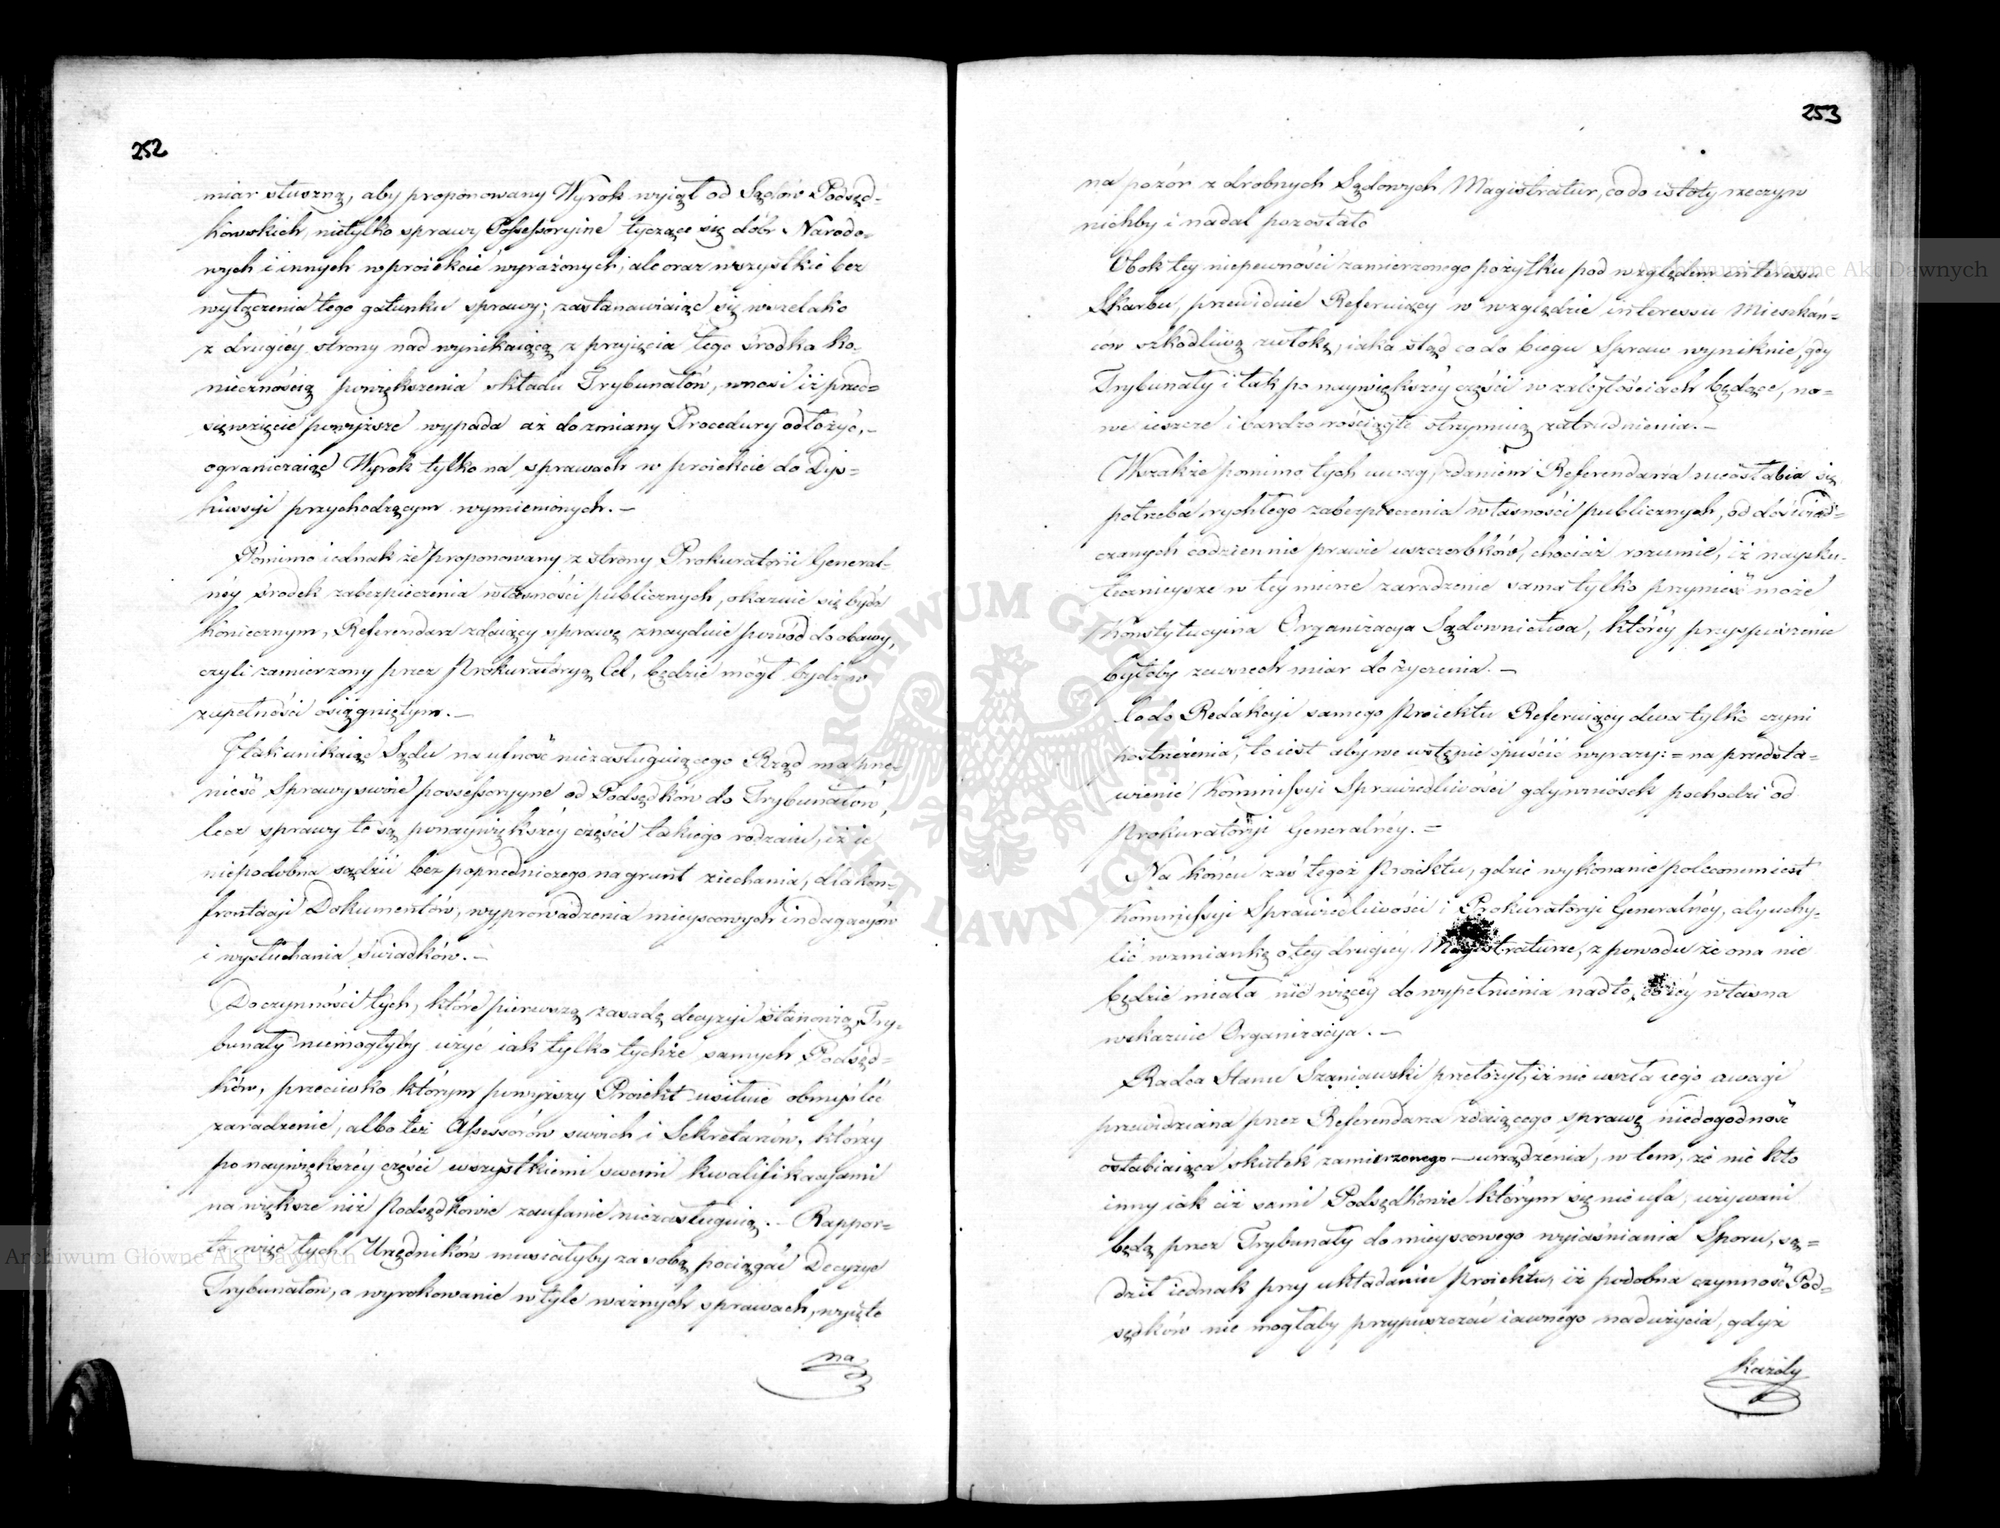 252
miar słuszną, aby proponowany Wyrok wyiął od Sądów Podsęd-
kowskich, nietylko sprawy Possessoryine tyczące się dóbr Narodo-
wych i innych w proiekcie wyrażonych, ale oraz wszystkie bez
wyłączenia tego gatunku sprawy; zastanawiaiąc się wszelako
z drugiéy strony nad wynikaiącą z przyięcia tego środka ko-
niecznością powiększenia składu Trybunałów, wnosi iż przed-
sięwzięcie powyższe wypada aż do zmiany Procedury odłożyć,-
ograniczaiąc Wyrok tylko na sprawach w proiekcie do Dys=
kussyi przychodzącym wymienionych.-
Pomimo iednak że proponowany z strony Prokuratorii General-
néy środek zabezpieczenia własności publicznych, okazuie się bydź
koniecznym, Referendarz zdaiący sprawę znayduie powód do obawy,
czyli zamierzony przez Prokuratoryą Cel, będzie mógł bydź w
zupełności osiągniętym.-
I tak unikaiąc Sądu na ufność niezasługuiącego Rząd ma prze-
nieść Sprawy swoie possessoryyne od Podsędków do Trybunałów,
lecz sprawy te są ponaywiększéy części takiego rodzaiu, iż ie
niepodobna sądzić bez poprzedniczego na grunt ziechania, dla kon-
frontacyi Dokumentów, wyprowadzenia mieyscowych indagacyów
i wysłuchania świadków.-
Do czynności tych, które pierwszą zasadę decyzyi stanowią, Try-
bunały niemogłyby użyć iak tylko tychże samych Podsęd-
ków, przeciwko którym powyższy Proiekt usiłuie obmyśleć
zaradzenie, albo też Assessorów swoich i Sekretarzów, którzy
po naywiększéy części wszystkiemi swemi kwalifikacyami
na większe niż Podsędkowie zaufanie niezasługuią.- Rappor-
ta więc tych Urzędników musiałyby za sobą pociągać Decyzye
Trybunałów, a wyrokowanie w tyle ważnych sprawach, wyięte
na
253
na pozór z drobnych Sądowych Magistratur, co do istoty rzeczy w
nichby i nadal pozostało
Obok téy niepewności zamierzonego pożytku pod względem interessu
Skarbu, przewiduie Referuiący w względzie interessu Mieszkań=
ców szkodliwą zwłokę, iaka stąd co do biegu Spraw wyniknie, gdy
Trybunały i tak po naywiększéy części w zaległościach będące, no=
we ieszcze i bardzo rościągłe otrzymuią zatrudnienia.-
Wszakże pomimo tych uwag, zdaniem Referendarza nieosłabia się
potrzeba rychłego zabezpieczenia własności publicznych, od doświad=
czanych codziennie prawie uszczerbków, chociaż rozumie, iż naysku-
tecznieysze w téy mierze zaradzenie sama tylko przynieść może
Konstytucyina Organizacya Sądownictwa, któréy przyspieszenie
byłoby ze wszech miar do życzenia.-
Co do Redakcyi samego Proiektu Referuiący dwa tylko czyni
postrzeżenia, to iest aby we wstępie opuścić wyrazy: = na przedsta=
wienie Kommissyi Sprawiedliwości gdy wniosek pochodzi od
Prokuratoryi Generalnéy.=
Na końcu zaś tegoż Proiektu, gdzie wykonanie poleconem iest
Kommissyi Sprawiedliwości i Prokuratoryi Generalnéy, aby uchy-
lić wzmiankę o téy drugiéy Magistraturze, z powodu że ona nie
będzie miała nic więcéy do wypełnienia nad to, co iéy własna
wskazuie Organizacya.-
Radca Stanu Szaniawski przełożył, iż nie uszła iego uwagi
przewidziana przez Referendarza zdaiącego sprawę niedogodność
osłabiaiąca skutek zamierzonego urządzenia, w tem, że nie kto
inny iak ciż sami Podsędkowie którym się nie ufa, używani
będą przez Trybunały do mieyscowego wyiaśniania Sporu, są=
dził iednak przy układaniu Proiektu, iż podobna czynność Pod=
sędków nie mogłaby przypuszczać iawnego nadużycia, gdyż
każdy
ARCHIWUM GŁÓWNE AKT DAWNYCH
Archiwum Główne Akt Dawnych
Archiwum Główne Akt Dawnych